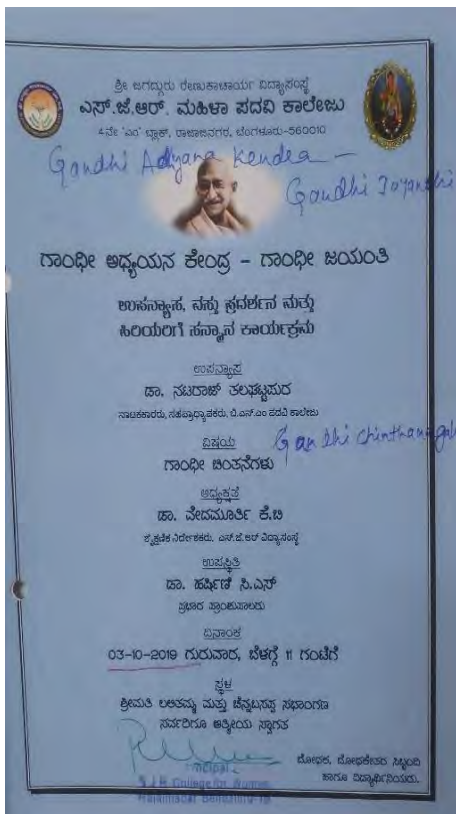 ಶ್ರೀ ಜಗದ್ಗುರು ರೇಣುಕಾಚಾರ್ಯ ವಿದ್ಯಾಸಂಸ್ಥೆ
ಎಸ್.ಜೆ.ಆರ್. ಮಹಿಳಾ ಪದವಿ ಕಾಲೇಜು
4ನೇ 'ಎಂ' ಬ್ಲಾಕ್, ರಾಜಾಜಿನಗರ, ಬೆಂಗಳೂರು-560010
Gandhi Adyana Kendra -
Gandhi Jayanthi
ಗಾಂಧೀ ಅಧ್ಯಯನ ಕೇಂದ್ರ - ಗಾಂಧೀ ಜಯಂತಿ
ಉಪನ್ಯಾಸ, ವಸ್ತು ಪ್ರದರ್ಶನ ಮತ್ತು
ಹಿರಿಯರಿಗೆ ಸನ್ಮಾನ ಕಾರ್ಯಕ್ರಮ
ಉಪನ್ಯಾಸ
ಡಾ. ನಟರಾಜ್ ತಲಘಟ್ಟಪುರ
ನಾಟಕಕಾರರು, ಸಹಪ್ರಾಧ್ಯಾಪಕರು, ಬಿ.ಎಸ್.ಎಂ ಪದವಿ ಕಾಲೇಜು
ವಿಷಯ
Gandhi chinthanegalu
ಗಾಂಧೀ ಚಿಂತನೆಗಳು
ಅಧ್ಯಕ್ಷತೆ
ಡಾ. ವೇದಮೂರ್ತಿ ಕೆ.ಬಿ
ಶೈಕ್ಷಣಿಕ ನಿರ್ದೇಶಕರು, ಎಸ್.ಜೆ.ಆರ್ ವಿದ್ಯಾಸಂಸ್ಥೆ
ಉಪಸ್ಥಿತಿ
ಡಾ. ಹರ್ಷಿಣಿ ಸಿ.ಎಸ್
ಪ್ರಭಾರ ಪ್ರಾಂಶುಪಾಲರು
ದಿನಾಂಕ
03-10-2019 ಗುರುವಾರ, ಬೆಳಗ್ಗೆ 11 ಗಂಟೆಗೆ
ಸ್ಥಳ
ಶ್ರೀಮತಿ ಲಲಿತಮ್ಮ ಮತ್ತು ಚೆನ್ನಬಸಪ್ಪ ಸಭಾಂಗಣ
ಸರ್ವರಿಗೂ ಆತ್ಮೀಯ ಸ್ವಾಗತ
ಬೋಧಕ, ಬೋಧಕೇತರ ಸಿಬ್ಬಂದಿ
ಹಾಗೂ ವಿದ್ಯಾರ್ಥಿನಿಯರು.
Principal
S J R College for Women
Rajajinagar Bengaluru-10